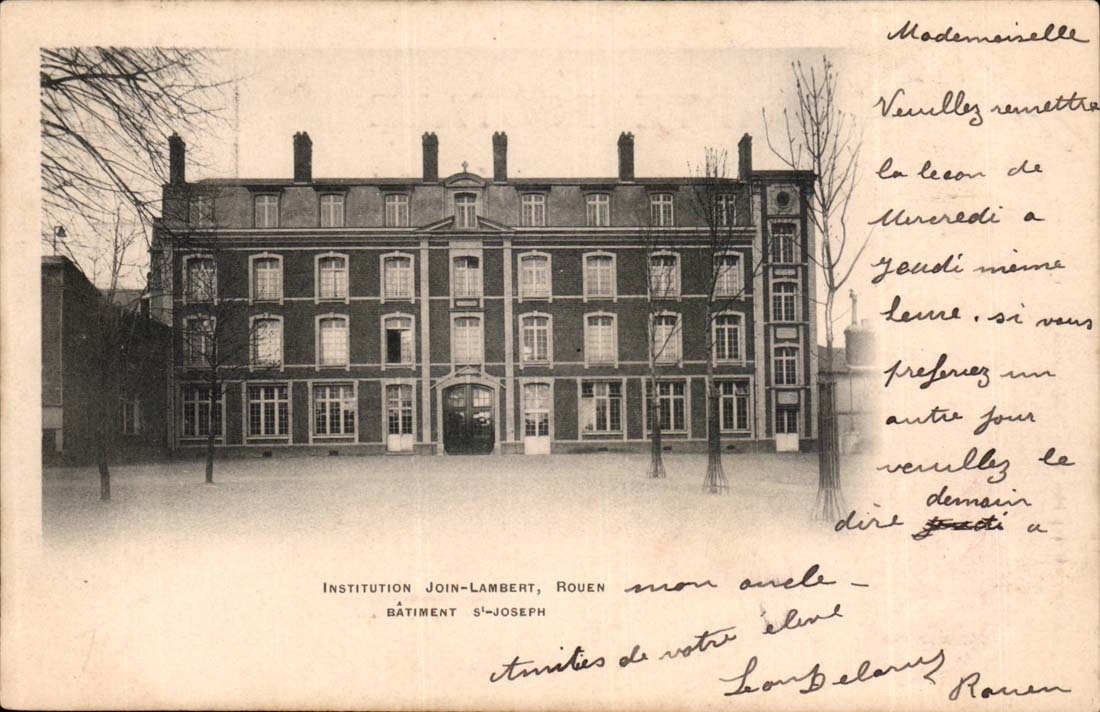 Mademoiselle
Veuillez remettre
la lecon de
Mercredi a
Jeudi même
heure. si vous
preferiez un
autre jour
veuillez le
demain
dire jeudi a
INSTITUTION JOIN-LAMBERT, ROUEN
BÂTIMENT St-JOSEPH
mon oncle -
Amitiés de votre élève
Leon Delarue
Rouen